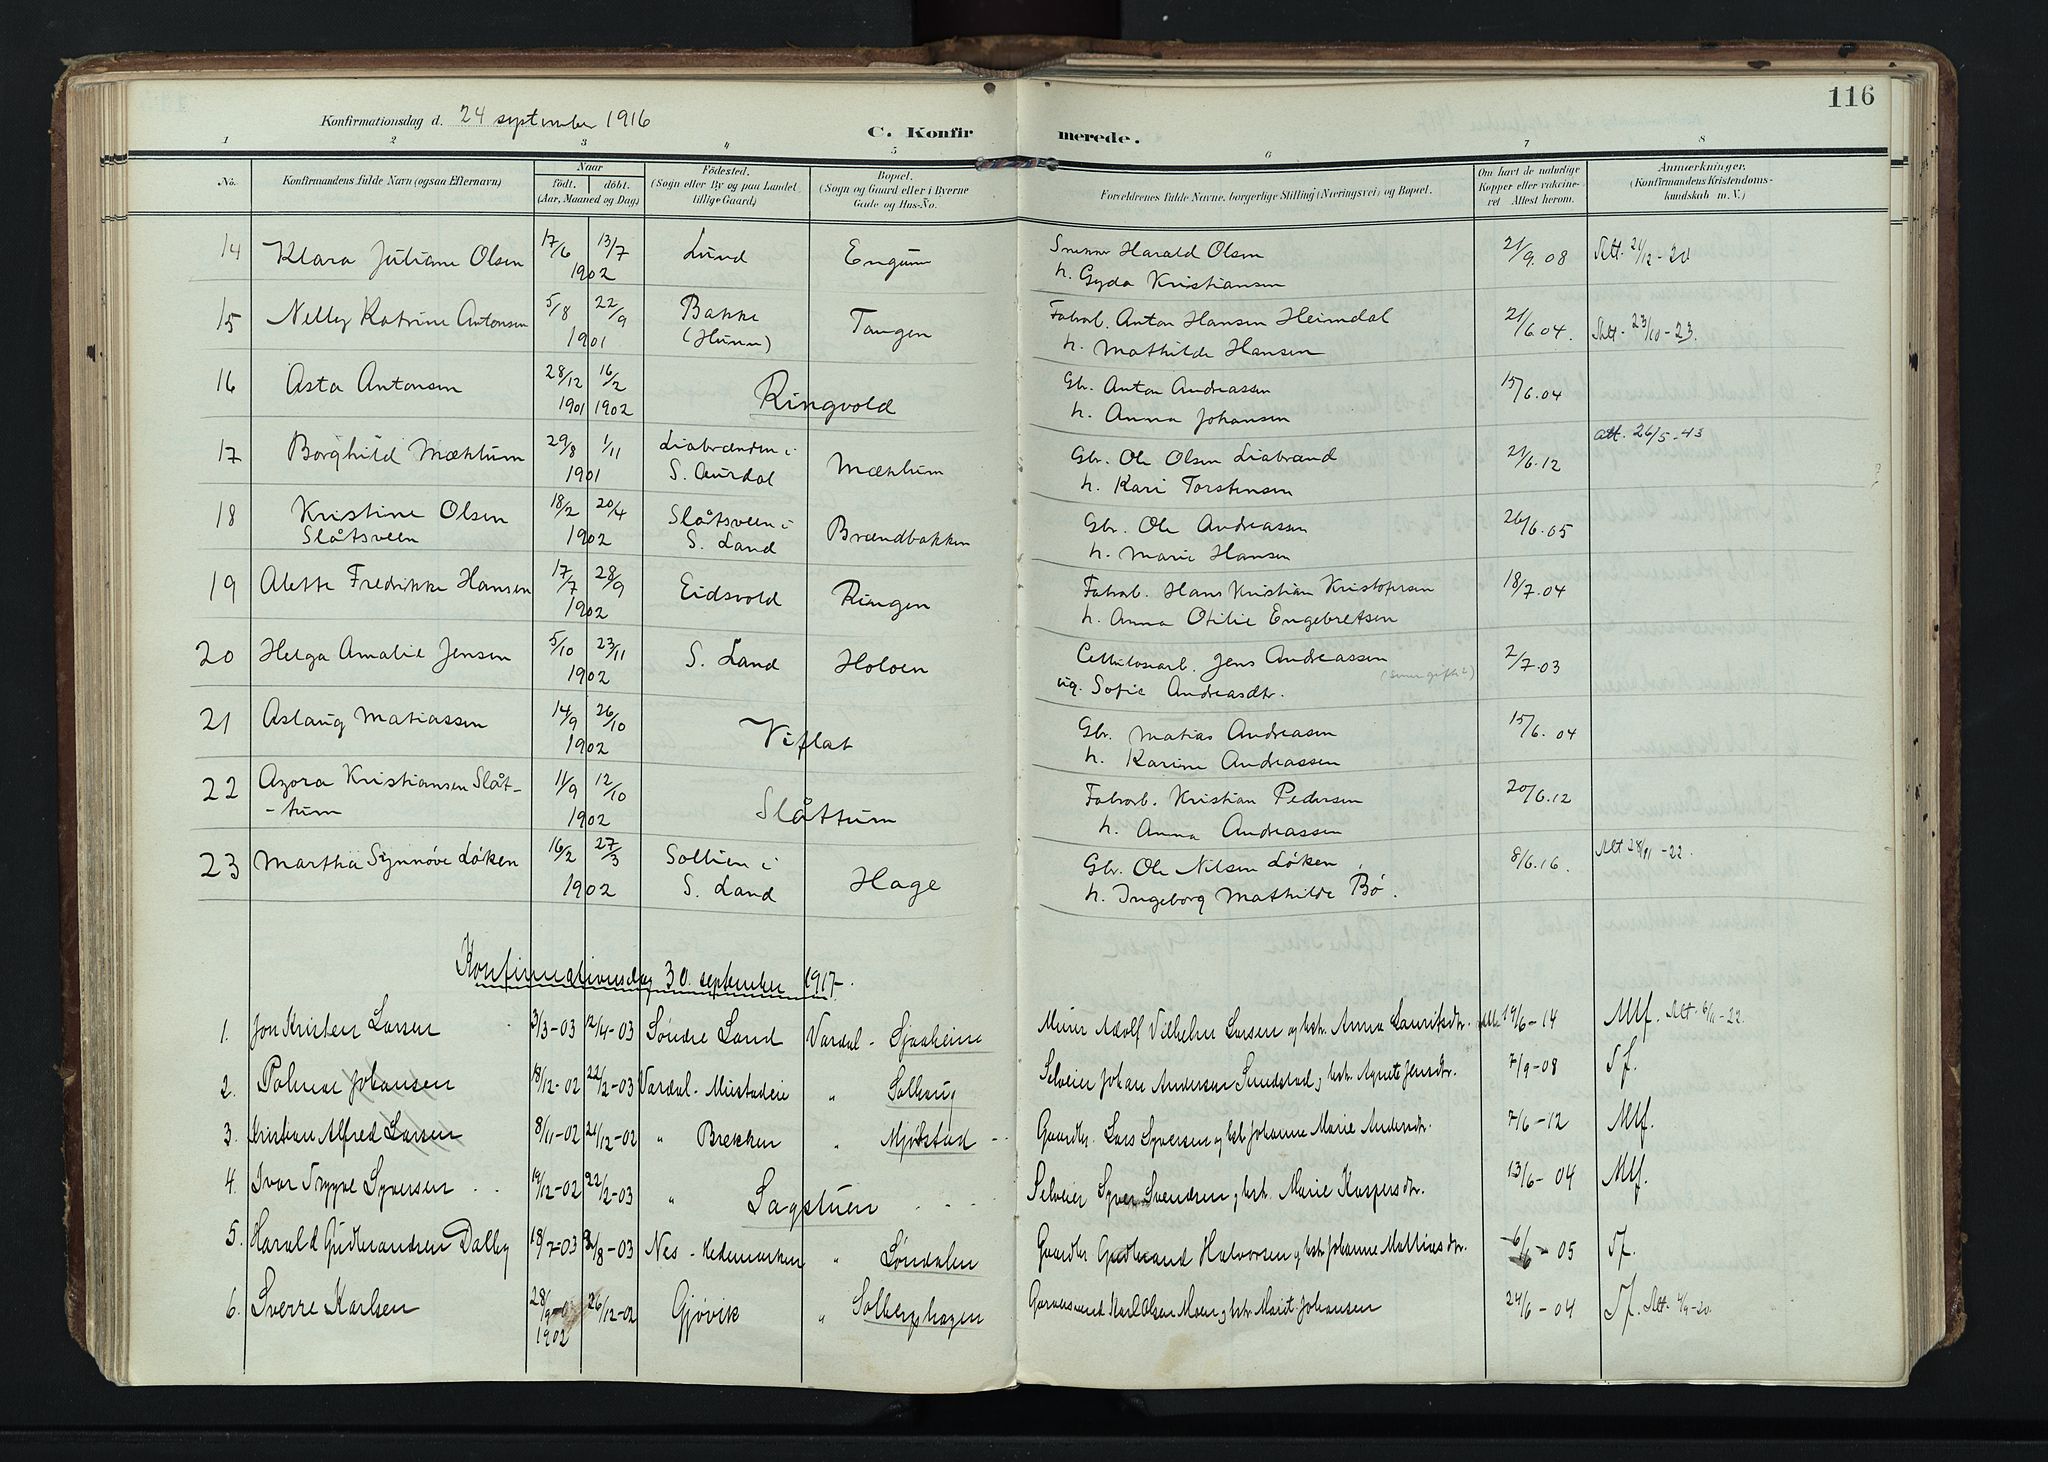 116
Konfirmationsdag d. 24 september 1916
C. Konfirmerede.
1 2 3 4 5 6 7 8
No. Konfirmandens fulde Navn (ogsaa Efternavn) Naar födt. döbt. (Aar, Maaned og Dag) Födested. (Sogn eller By og paa Landet tillige Gaard) Bopæl. (Sogn og Gaard eller i Byerne Gade og Hus-No. Forældrenes fulde Navne, borgerlige Stilling (Næringsvei) og Bopæl. Om havt de naturlige Kopper eller vaccineret Attest herom. Anmærkninger. (Konfirmandens Kristendomskundskab m. V.)
14 Klara Juliane Olsen 17/6 13/7 1902 Lund Engum Harald Olsen 21/9.08 Att. 21/12-20
h. Gyda Kristiansen
15 Nelly Katrine Antonsen 5/8 22/9 1901 Bakke (Hunn) Tangen Fabrarb. Anton Hansen Heimdal 21/6.04. Att. 23/10-23.
h. Mathilde Hansen
16 Asta Antonsen 28/12 1901 16/2 1902 Ringvold Gbr. Anton Andreassen 15/6.04
h. Anna Johansen
17 Borghild Mæhlum 29/8 1/11 1901 Liabrænden i S. Aurdal Mæhlum Gbr. Ole Olsen Liabrænd 21/6.12 Att. 26/5-43
h. Kari Torstensen
18 Kristine Olsen Slåtsveen 18/2 20/4 1902 Slåtsveen i S. Land Brændbakken Gbr. Ole Andreassen 26/6.05
h. Marie Hansen
19 Alette Fredrikke Hansen 17/7 28/9 1902 Eidsvold Ringen Fabrarb. Hans Kristian Kristofersen 18/7.04
h. Anna Otilie Engebretsen
20 Helga Amalie Jensen 5/10 23/11 1902 S. Land Holoen Cellulosearb. Jens Andreassen 2/7.03
ug. Sofie Andreasdtr.
21 Aslaug Matiassen 14/9 26/10 1902 Viflat Gbr. Matias Andreasen 15/6.04
h. Karine Andreassen
22 Azora Kristiansen Slåt-
-tum 11/9 12/10 1902 Slåttum Fabrarb. Kristian Pedersen 20/6.12
h. Anna Andreassen
23 Martha Synnøve Løken 16/2 27/3 1902 Sollien i S. Land Hage Gbr. Ole Nilsen Løken 8/6.16. Att 28/11-22.
h. Ingeborg Mathilde Bø.
Konfirmationsdag 30. september 1917
1. Jon Kristen Larsen 3/3-03 12/4-03 Søndre Land Vardal - Sjaaheim Murer Adolf Vilhelm Larsen og hstr. Anna Lauritsdtr. 19/6-14 Mtf. Att. 6/11-22
2. Palmar Johansen 18/12-02 22/2-03 Vardal - Mustadeie " Solhaug Selveier Johan Andersen Sundstad og hstr. Agnete Jensdtr. 7/9-08 Tf.
3. Kristian Alfred Larsen 8/11-02 21/12-02 " Brekken " Mjøstad Gaardbr. Lars Syversen og hstr Johanne Marie Andersdtr. 7/6-12 Mtf.
4. Ivar Trygve Syversen 19/12-02 22/2-03 " Sagstuen Selveier Syver Svendsen og hstr. Marie Kaspersdtr. 13/6-04 Mtf.
5. Harald Gudbrandsen Dalby 18/7-03 /8-03 Nes - Hedemarken " Søndalen Gaardbr. Gudbrand Halvorsen og hstr Johanne Mathiasdtr. 6/6-05 Tf.
6. Sverre Karlsen 28/9 1902 26/12-02 Gjøvik " Solberghagen Garversvend Karl Olsen Moen og hstr. Marit Johansen 24/6-04 Tf. Att. 4/9-20.